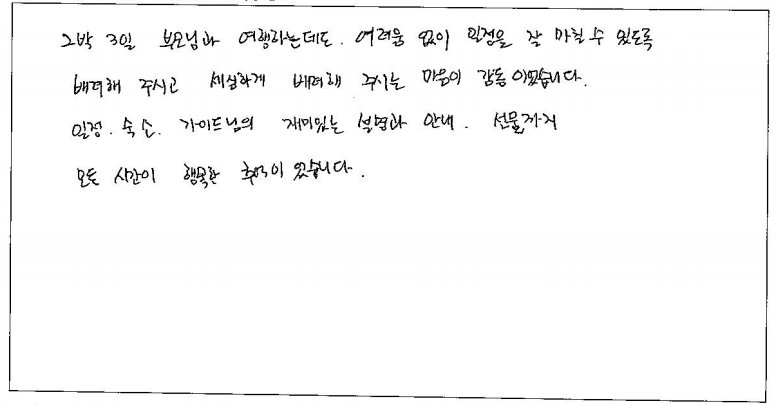 2박 3일 부모님과 여행하는데도. 어려움 없이 일정을 잘 마칠 수 있도록
배려해 주시고 세심하게 배려해 주시는 마음이 감동이었습니다.
일정. 숙소. 가이드님의 재미있는 설명과 안내. 선물까지
모든 시간이 행복한 추억이었습니다.